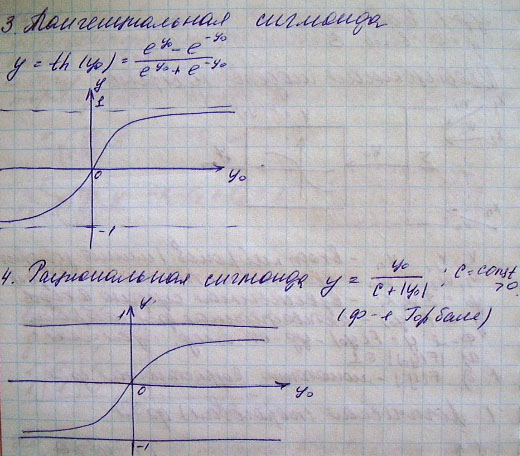 3. Тангенциальная сигмоида
y = th(y₀) = (e^y₀ − e^−y₀) / (e^y₀ + e^−y₀)
y
1
0
y₀
-1
4. Рациональная сигмоида y = y₀ / (c + |y₀|) ; c = const > 0
(ф-я Гор бане)
y
1
0
y₀
-1